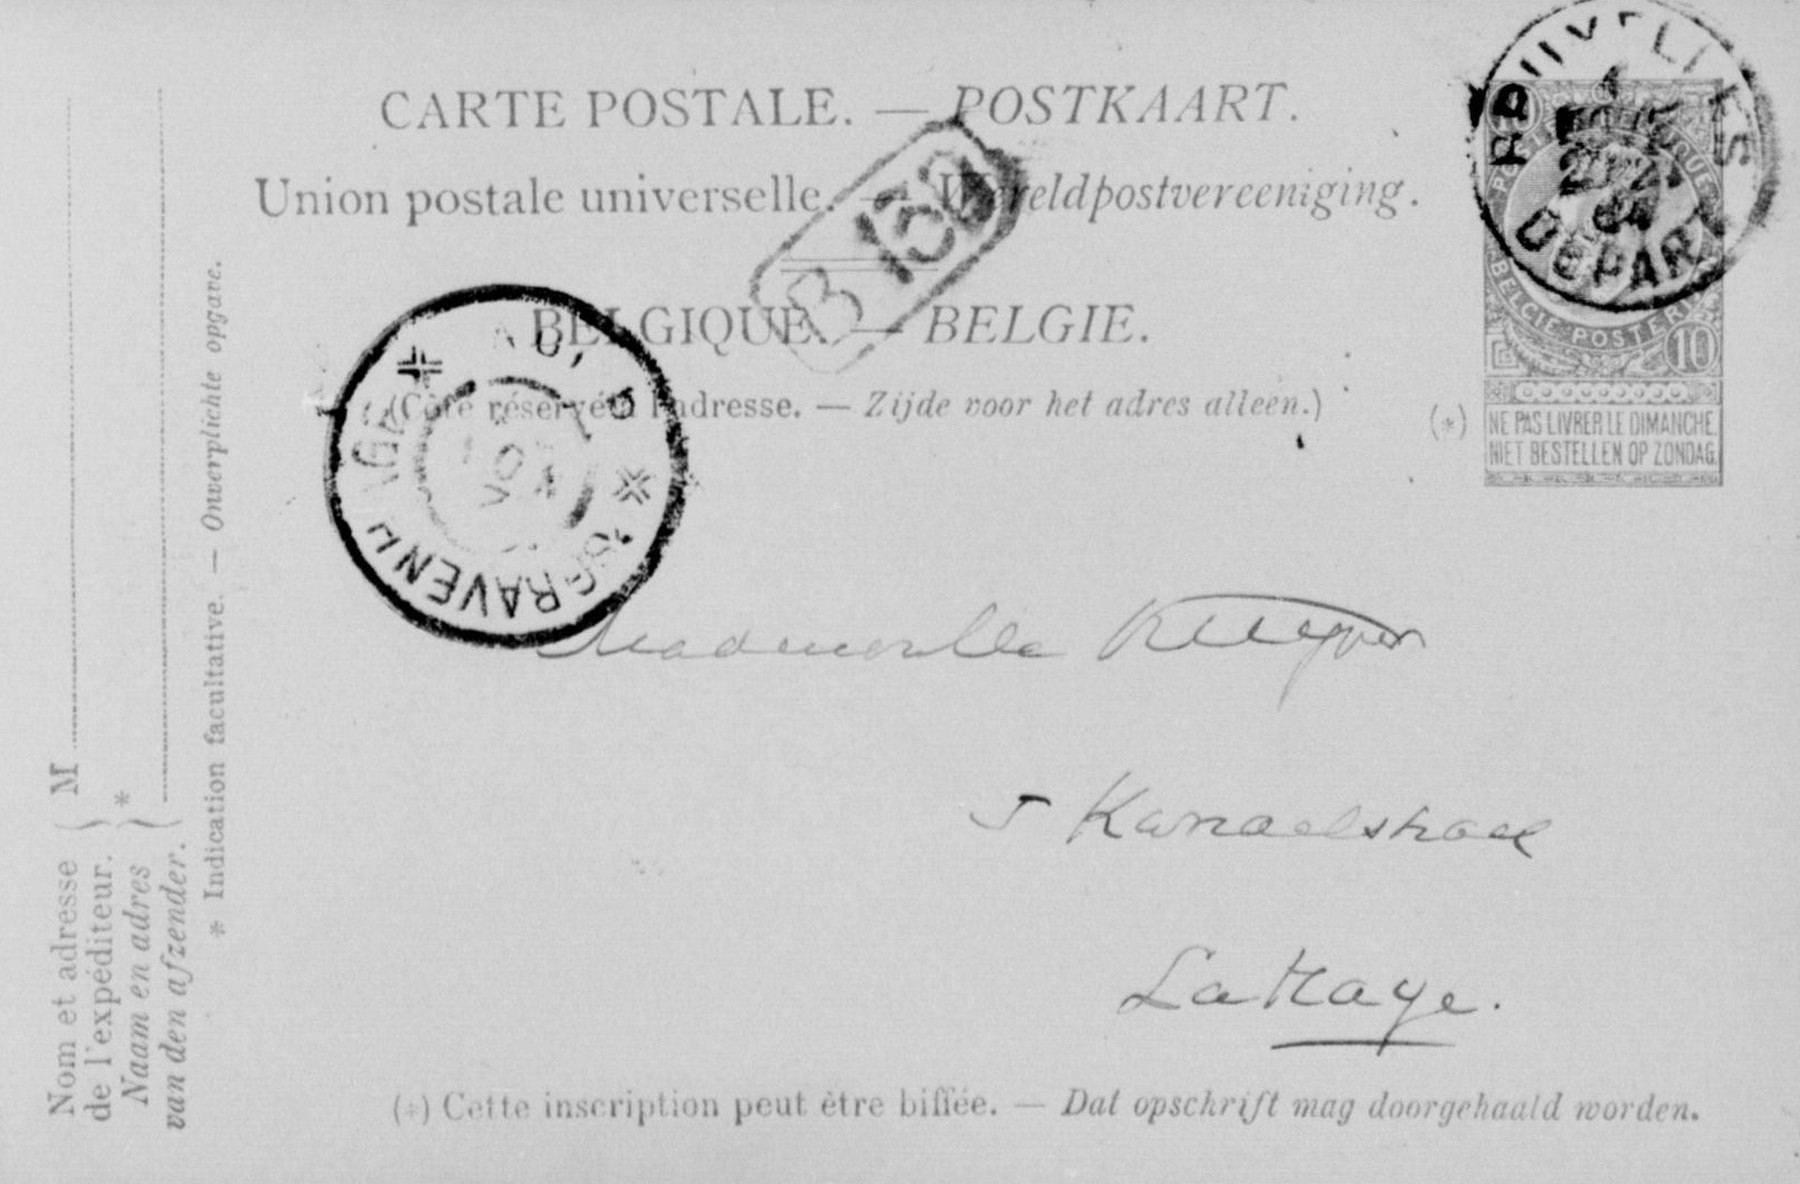 CARTE POSTALE. — POSTKAART.
Union postale universelle. — Wereldpostvereeniging.
B 130
BELGIQUE. — BELGIE.
(Côté réservé à l'adresse. — Zijde voor het adres alleen.)
BRUXELLES
DÉPART
BELGIE POSTERIJ
10
(*) NE PAS LIVRER LE DIMANCHE.
NIET BESTELLEN OP ZONDAG.
'SGRAVENHAGE
NOV
Mademoiselle Kuyper
5 Kanaalstraat
La Haye.
(*) Cette inscription peut être biffée. — Dat opschrift mag doorgehaald worden.
Nom et adresse
de l'expéditeur.
Naam en adres
van den afzender.
M
* Indication facultative. — Onverplichte opgave.